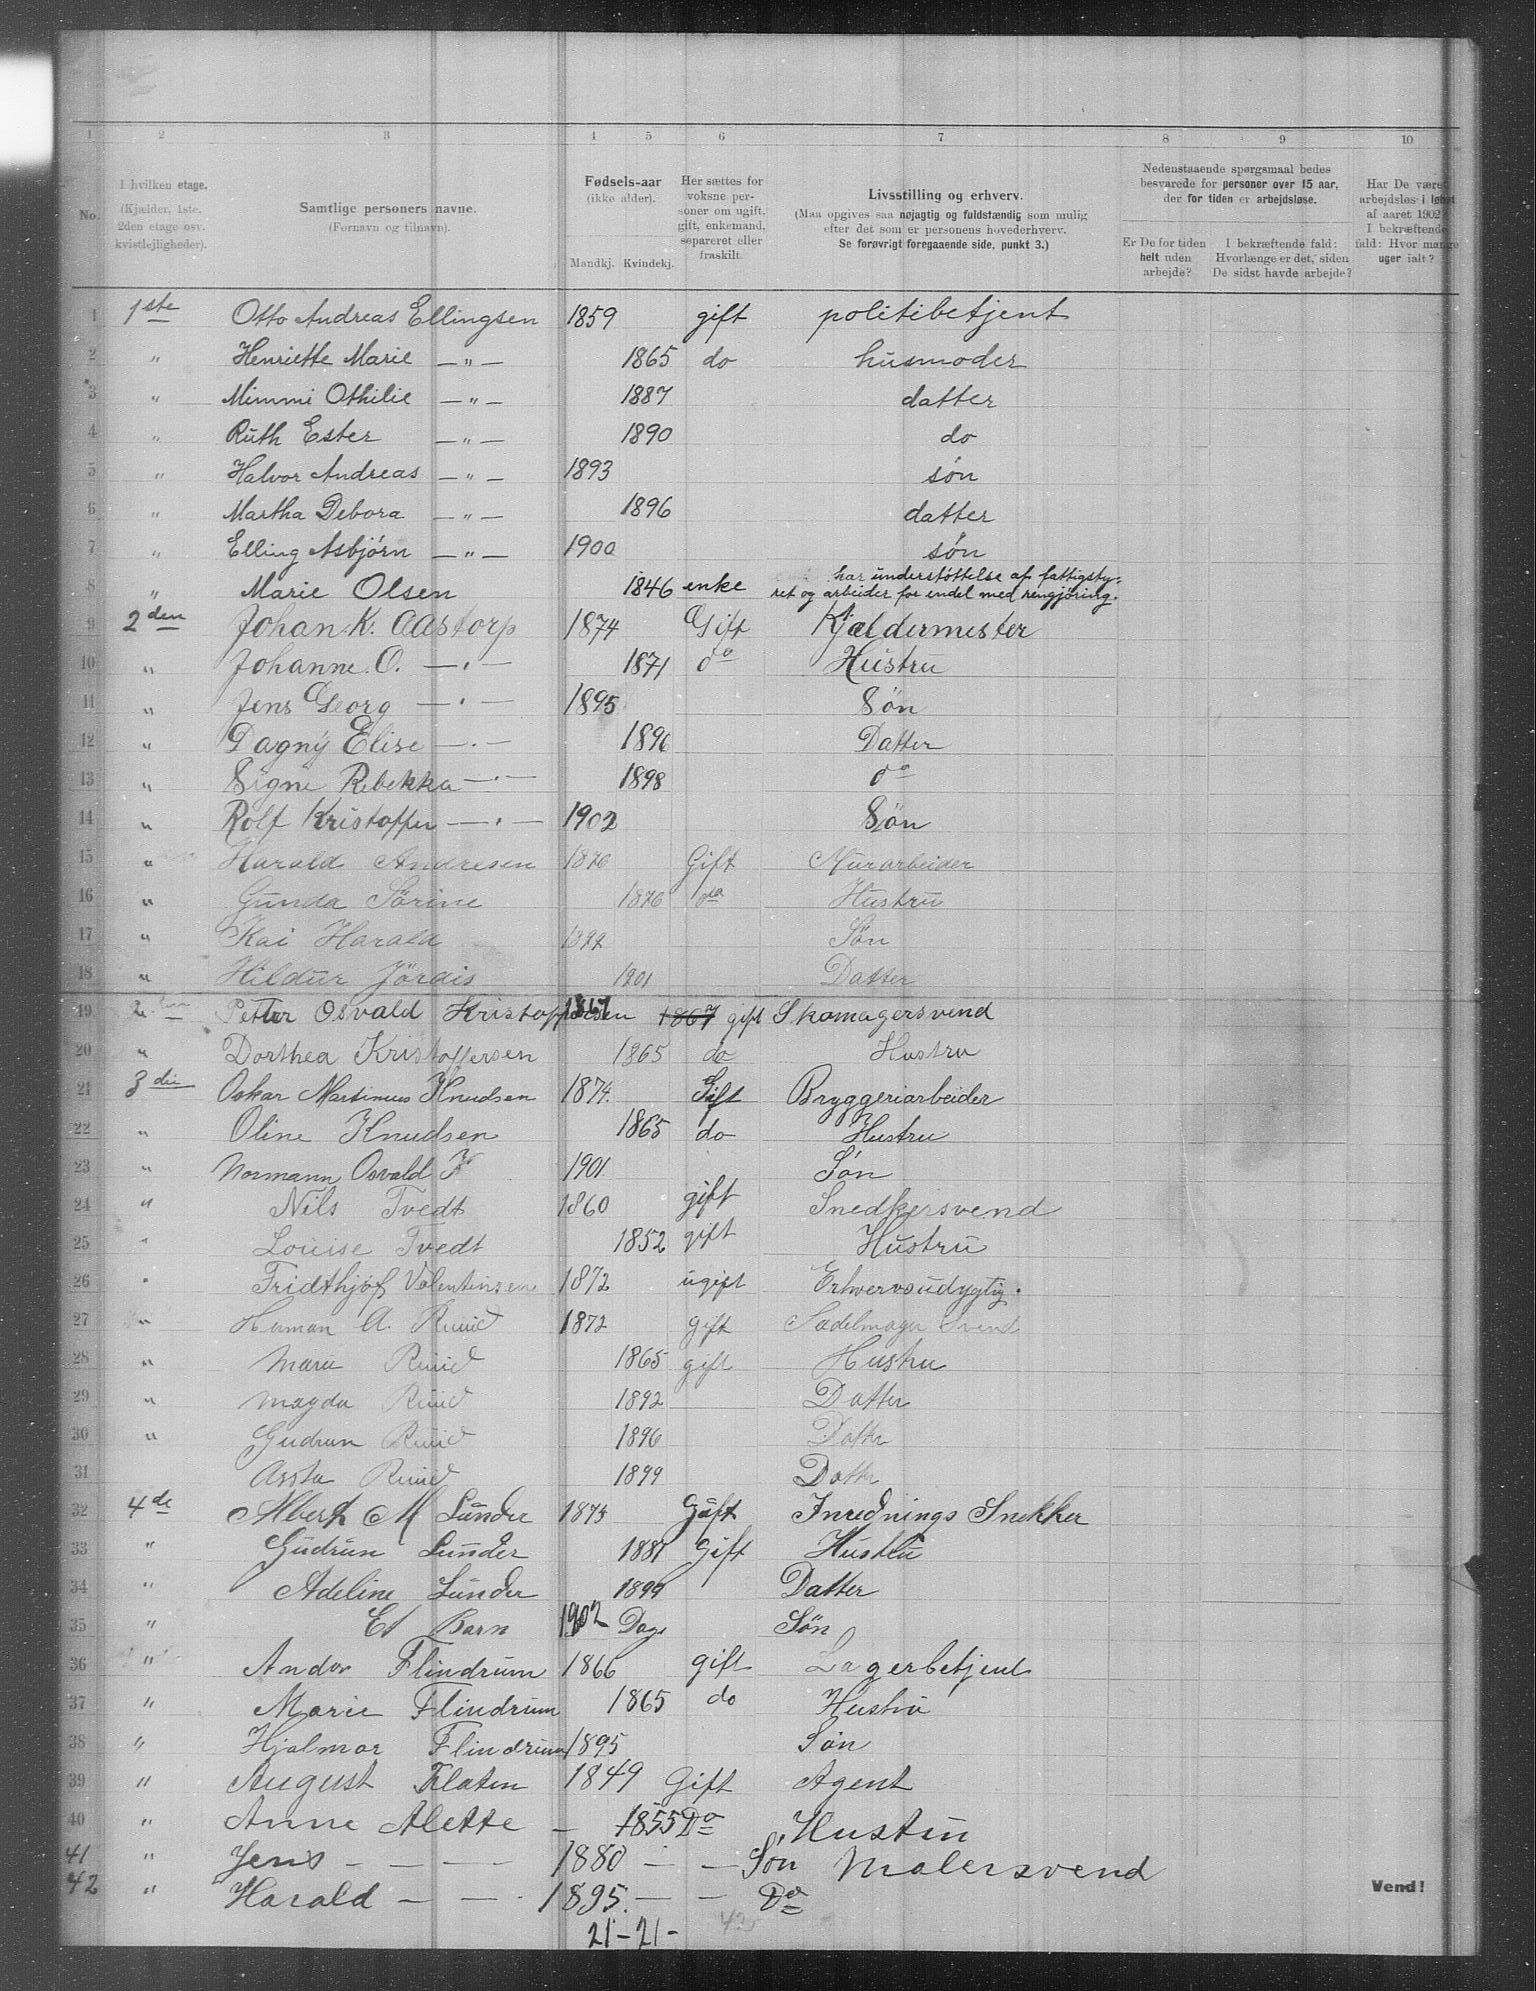 1 2 3 4 5 6 7 8 9 10
No.
I hvilken etage.
(Kjælder, 1ste.
2den etage osv.
kvistlejligheder).
Samtlige personers navne.
(Fornavn og tilnavn).
Fødsels-aar
(ikke alder).
Mandkj. Kvindekj.
Her sættes for
voksne per-
soner om ugift,
gift, enkemand,
separeret eller
fraskilt.
Livsstilling og erhverv.
(Maa opgives saa nøjagtig og fuldstændig som mulig
efter det som er personens hovederhverv.
Se forøvrigt foregaaende side, punkt 3.)
Nedenstaaende spørgsmaal bedes
besvarede for personer over 15 aar,
der for tiden er arbejdsløse.
Er De for tiden
helt uden
arbejde?
I bekræftende fald:
Hvorlænge er det, siden
De sidst havde arbejde?
Har De været
arbejdsløs i løbet
af aaret 1902
I bekræftende
fald: Hvor mange
uger ialt?
1 1ste Otto Andreas Ellingsen 1859 gift politibetjent
2 " Henriette Marie — " — 1865 do husmoder
3 " Mimmi Othilie — " — 1887 datter
4 " Ruth Ester — " — 1890 do
5 " Halvor Andreas — " — 1893 søn
6 " Martha Debora — " — 1896 datter
7 " Elling Asbjørn — " — 1900 søn
8 " Marie Olsen 1846 enke har understøttelse af fattigsty-
ret og arbeider for endel med rengjøring.
9 2den Johan K. Aastorp 1874 Gift Kjældermester
10 " Johanne O. — " — 1871 do Hustru
11 " Jens Georg — " — 1895 Søn
12 " Dagny Elise — " — 1896 Datter
13 " Signe Rebekka — " — 1898 do
14 " Rolf Kristoffer — " — 1902 Søn
15 " Harald Andresen 1876 Gift Murarbeider
16 " Gunda Sørine 1876 do Hustru
17 " Kai Harald Søn
18 " Hildur Jørdis 1901 Datter
19 2den Petter Osvald Kristoffersen 1867 1867 gift Skomagersvend
20 " Dorthea Kristoffersen 1865 do Hustru
21 3die Oskar Martinius Knudsen 1874. Gift Bryggeriarbeider
22 " Oline Knudsen 1865 do Hustru
23 " Normann Osvald K 1901 Søn
24 " Nils Tvedt 1860 gift Snedkersvend
25 " Louise Tvedt 1852 gift Hustru
26 " Fridthjof Valentinsen 1872 ugift Erhvervsudygtig.
27 " Herman A. Ruud 1872 gift Sadelmager Svend
28 " Marie Ruud 1865 gift Hustru
29 " Magda Ruud 1892 Datter
30 " Gudrun Ruud 1896 Datter
31 Assta Ruud 1899 Datter
32 4de Albert M Lunder 1875 Gift Inrednings Snekker
33 " Gudrun Lunder 1881 Gift Hustru
34 " Adeline Lunder 1899 Datter
35 " Et Barn 1902 Dage Søn
36 " Andor Flindrum 1866 gift Lagerbetjent
37 " Marie Flindrum 1865 do Hustru
38 " Hjalmar Flindrum 1895 Søn
39 " August Flaten 1849 Gift Agent
40 " Anne Alette — 1855 Do Hustru
41 " Jens — — — 1880 — — Søn Malersvend
42 " Harald — — 1895. — — Do
Vend!
21-21-